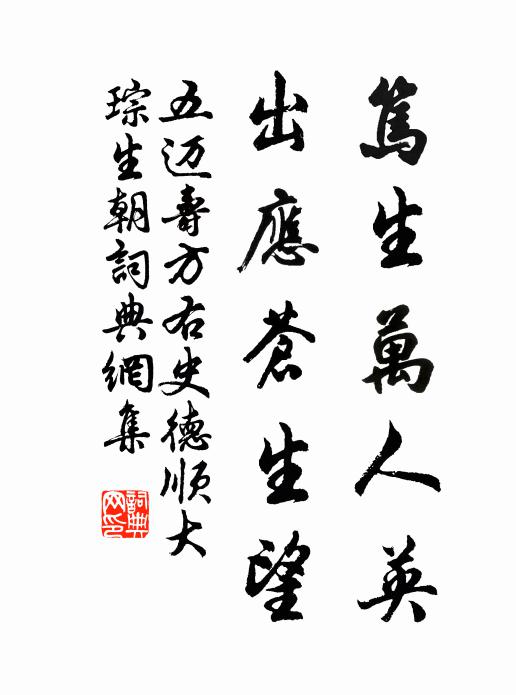 篤生萬人英
出應蒼生望
五迈壽方右史德順大
琮生朝詞典網集
詞典网印